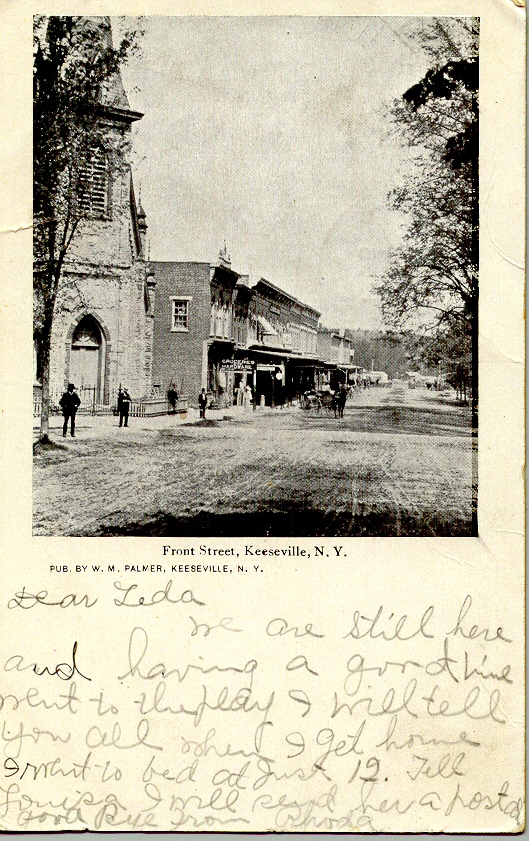 GROCERIES
HARDWARE
Front Street, Keeseville, N. Y.
PUB. BY W. M. PALMER, KEESEVILLE, N. Y.
Dear Leda
we are still here
and having a good time
went to the play I will tell
you all when I get home
I went to bed at Just 12. Tell
Louisa I will send her a postal
Good Bye from Rhoda